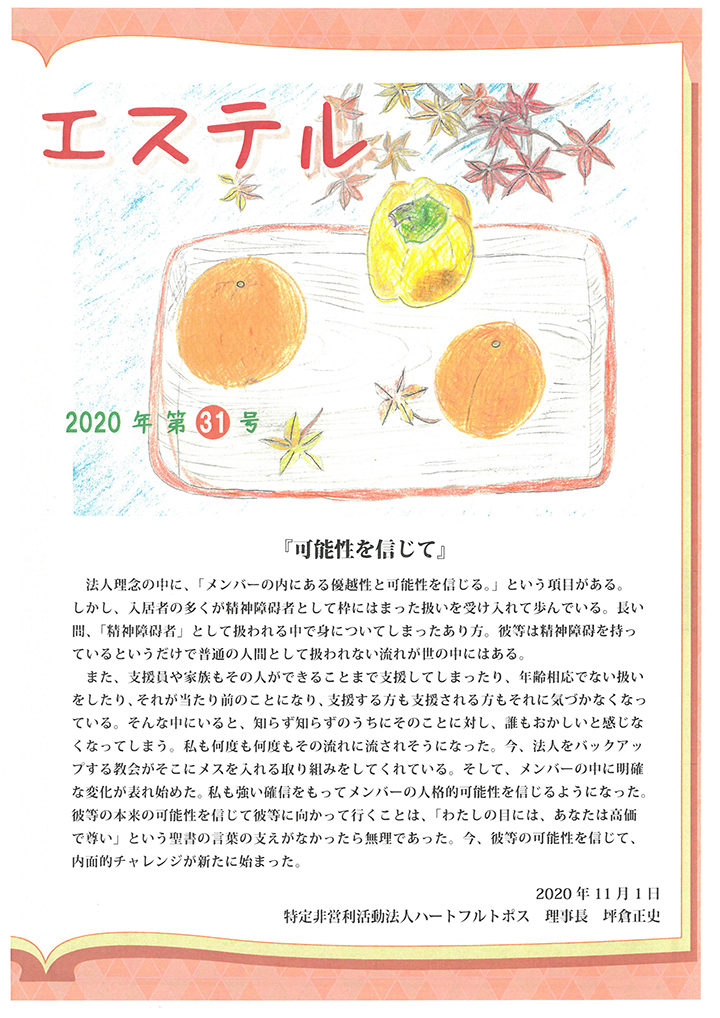 エステル
2020 年 第 31 号
『可能性を信じて』
法人理念の中に、「メンバーの内にある優越性と可能性を信じる。」という項目がある。
しかし、入居者の多くが精神障碍者として枠にはまった扱いを受け入れて歩んでいる。長い
間、「精神障碍者」として扱われる中で身についてしまったあり方。彼等は精神障碍を持っ
ているというだけで普通の人間として扱われない流れが世の中にはある。
また、支援員や家族もその人ができることまで支援してしまったり、年齢相応でない扱い
をしたり、それが当たり前のことになり、支援する方も支援される方もそれに気づかなくなっ
ている。そんな中にいると、知らず知らずのうちにそのことに対し、誰もおかしいと感じな
くなってしまう。私も何度も何度もその流れに流されそうになった。今、法人をバックアッ
プする教会がそこにメスを入れる取り組みをしてくれている。そして、メンバーの中に明確
な変化が表れ始めた。私も強い確信をもってメンバーの人格的可能性を信じるようになった。
彼等の本来の可能性を信じて彼等に向かって行くことは、「わたしの目には、あなたは高価
で尊い」という聖書の言葉の支えがなかったら無理であった。今、彼等の可能性を信じて、
内面的チャレンジが新たに始まった。
2020 年 11 月 1 日
特定非営利活動法人ハートフルトポス　理事長　坪倉正史